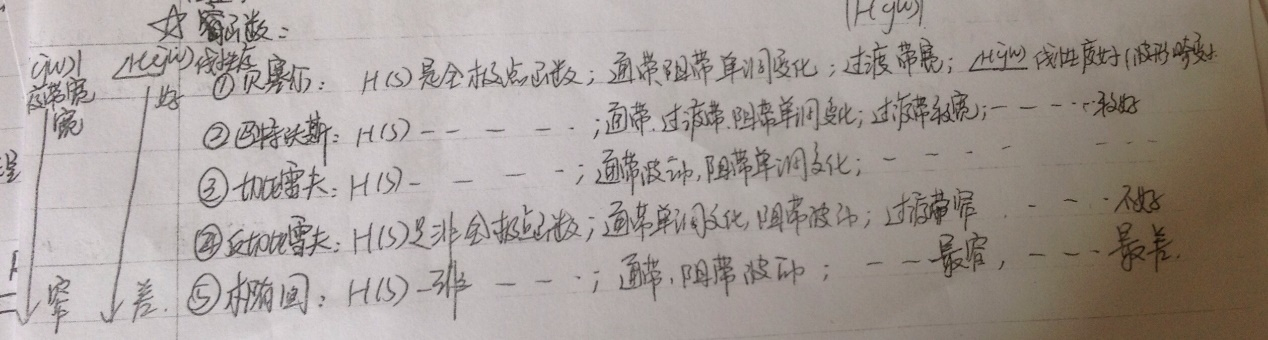 |H(jω)|
☆ 窗函数：
(jω)| ∠H(jω)线性度
过渡带宽 好 ① 贝塞尔： H(s)是全极点函数；通带阻带单调变化；过渡带宽；∠H(jω) 线性度好(波形
宽 ② 巴特沃斯：H(s) - - - - ；通带.过渡带.阻带单调变化；过渡带较宽；- - - - 较好
③ 切比雪夫：H(s) - - - - ；通带波动,阻带单调变化； - - - - - - -
④ 反切比雪夫：H(s)是非全极点函数；通带单调变化,阻带波动；过渡带窄 - - - 不好
窄 差. ⑤ 椭圆：H(s) - 非 - - - ；通带,阻带波动； - - 最窄， - - - 最差.